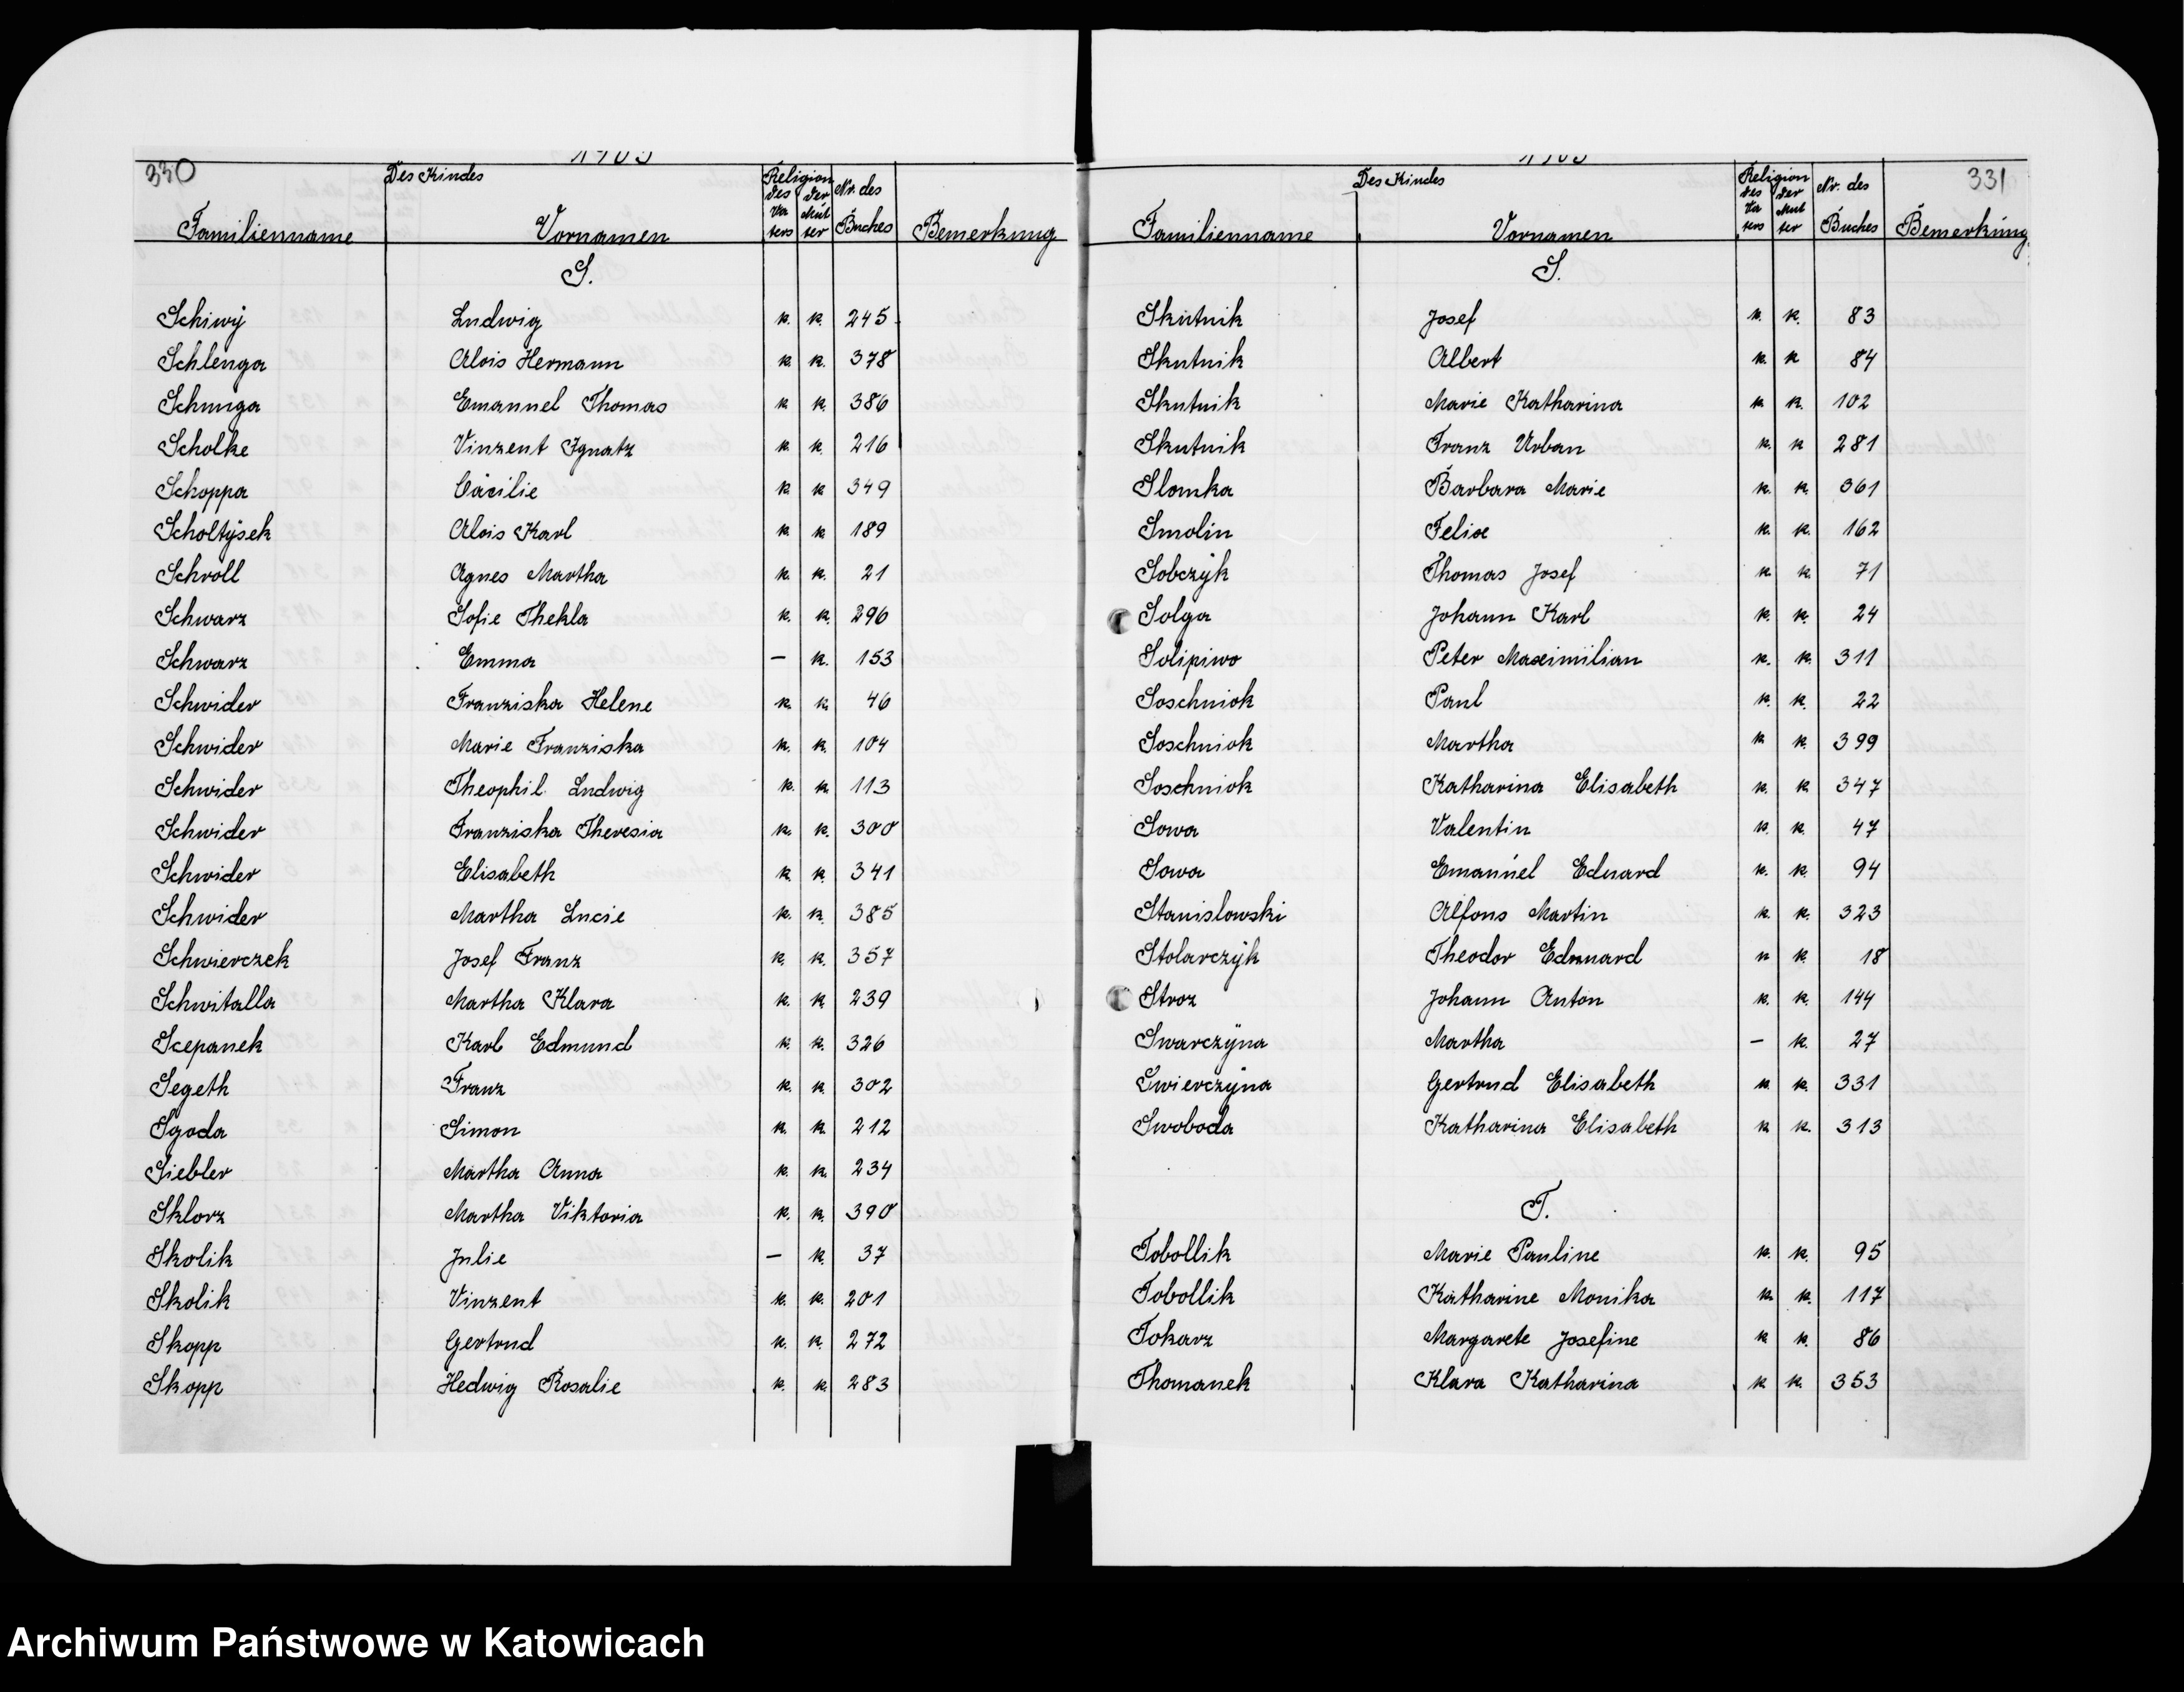 330
Des Kindes
Religion
des Vaters der Mutter
Nr. des Buches
Familienname Vornamen Bemerkung
S.
Schiwy Ludwig k. k. 245
Schlenga Alois Hermann k. k. 378
Schunga Emanuel Thomas k k. 386
Scholke Vinzent Ignatz k k. 216
Schoppa Cäcilie k k 349
Scholtysek Alois Karl k k 189
Schroll Agnes Martha k. k. 21
Schwarz Sofie Thekla k. k. 296
Schwarz Emma — k. 153
Schwider Franziska Helene k. k. 46
Schwider Marie Franziska k. k. 104
Schwider Theophil Ludwig k. k. 113
Schwider Franziska Theresia k. k. 300
Schwider Elisabeth k. k. 341
Schwider Martha Lucie k. k. 385
Schwierczek Josef Franz k. k. 357
Schwitalla Martha Klara k. k 239
Scepanek Karl Edmund k. k. 326
Segeth Franz k. k. 302
Sgoda Simon k. k. 212
Siebler Martha Anna k. k. 234
Sklorz Martha Viktoria k. k. 390
Skolik Julie — k. 37
Skolik Vinzent k. k. 201
Skopp Gertrud k. k. 272
Skopp Hedwig Rosalie k. k. 283
331
Des Kindes
Religion
des Vaters der Mutter
Nr. des Buches
Familienname Vornamen Bemerkung
S.
Skutnik Josef k. k. 83
Skutnik Albert k. k 84
Skutnik Marie Katharina k. k. 102
Skutnik Franz Urban k. k 281
Slomka Barbara Marie k. k. 361
Smolin Felix k. k. 162
Sobczyk Thomas Josef k. k. 71
Solga Johann Karl k. k. 24
Solipiwo Peter Maximilian k. k. 311
Soschniok Paul k. k. 22
Soschniok Martha k k. 399
Soschniok Katharina Elisabeth k. k 347
Sowa Valentin k. k. 47
Sowa Emanuel Eduard k. k. 94
Stanislowski Alfons Martin k. k. 323
Stolarczyk Theodor Edmuard k k. 18
Stroz Johann Anton k. k. 144
Swarczyna Martha — k. 27
Swierczyna Gertrud Elisabeth k. k. 331
Swoboda Katharina Elisabeth k k. 313
T.
Tobollik Marie Pauline k. k. 95
Tobollik Katharine Monika k. k. 117
Tokarz Margarete Josefine k k. 86
Thomanek Klara Katharina k k. 353
Archiwum Państwowe w Katowicach